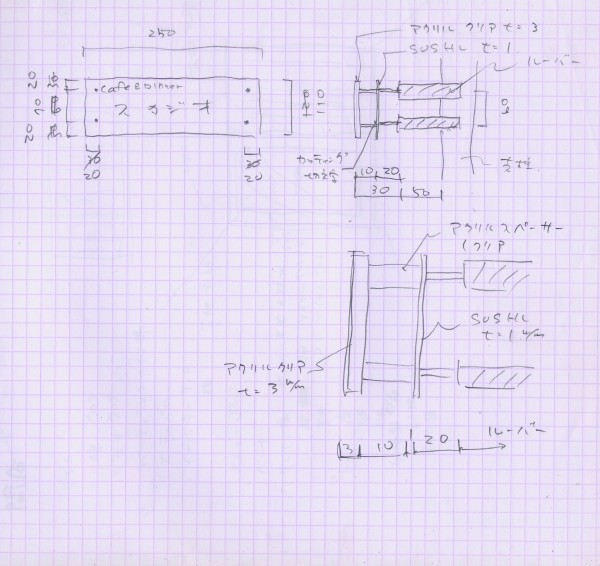 250
アクリル クリア t=3
SUSHL t=1
ルーバー
cafe&dinner
スタジオ
20
70
20
110
20
20
カッティング
切文字
10 20
30 50
70
支柱
アクリルスペーサー
クリア
SUSHL
t=1 m/m
アクリルクリア
t=3 m/m
3 10 1 20 ルーバー